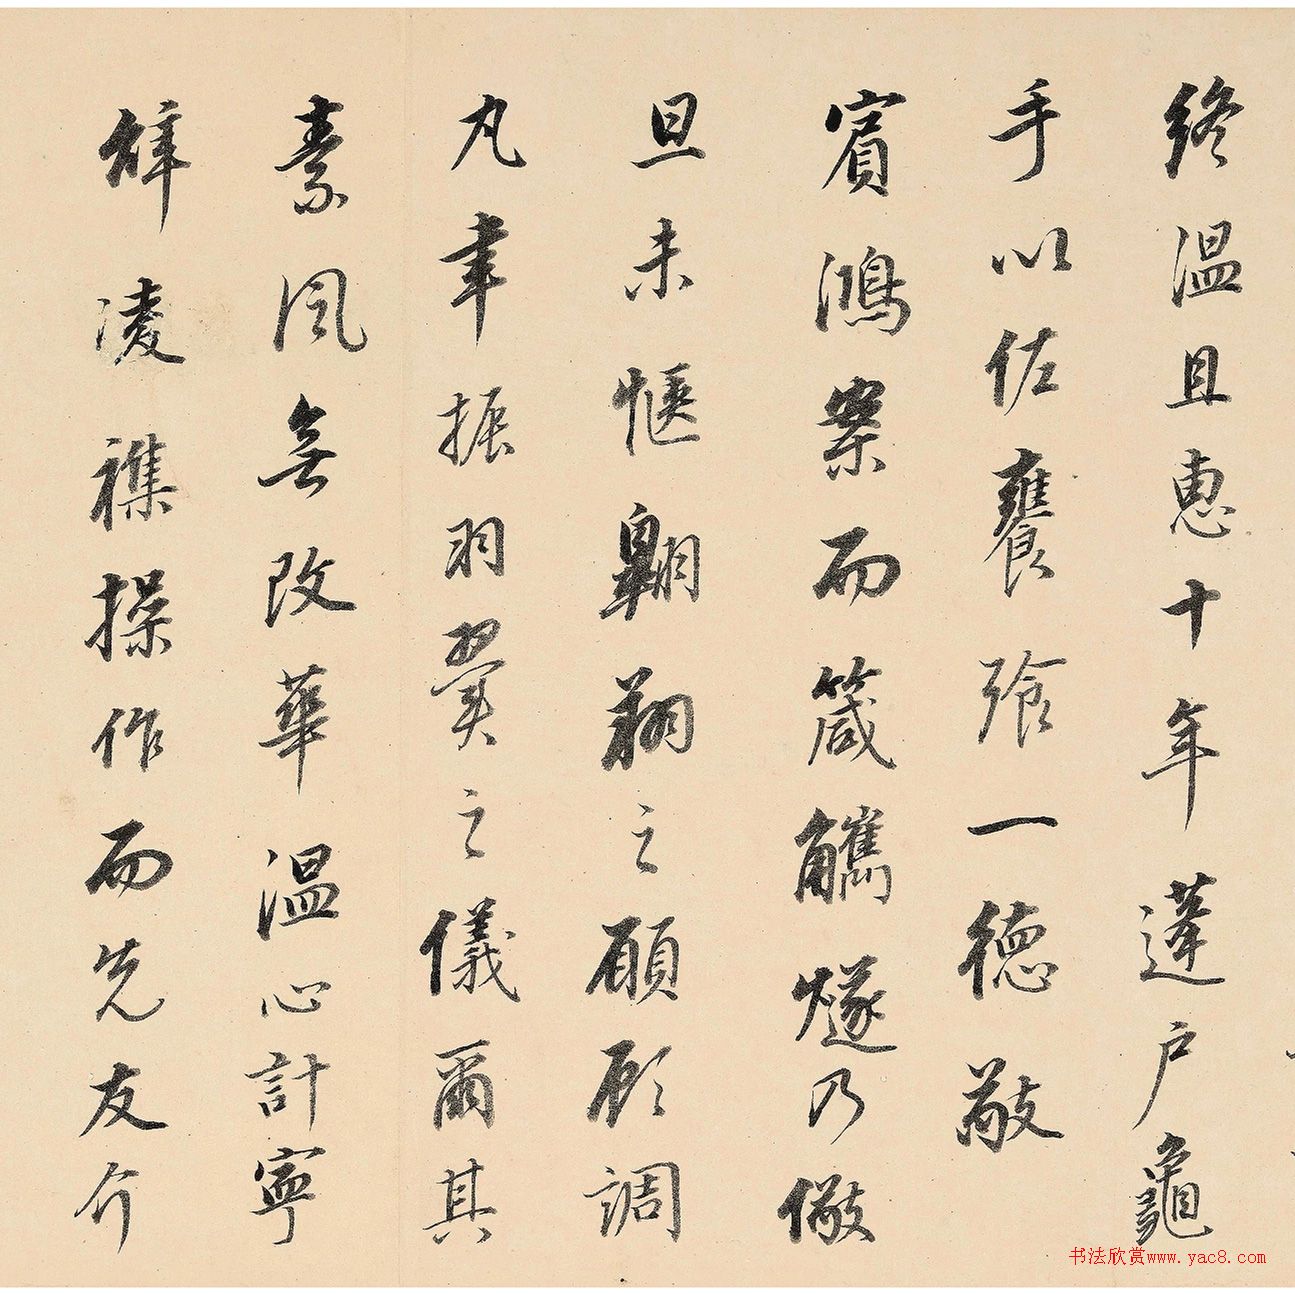 終溫且惠十年蓬戶龜
手以佐饔飱一德敬
賓鴻案而箴觿燧乃儆
旦未愜翱翔之願顧調
丸聿振羽翼之儀爾其
素風無改華溫心計寧
辭凌襍操作而先友介
书法欣赏www.yac8.com